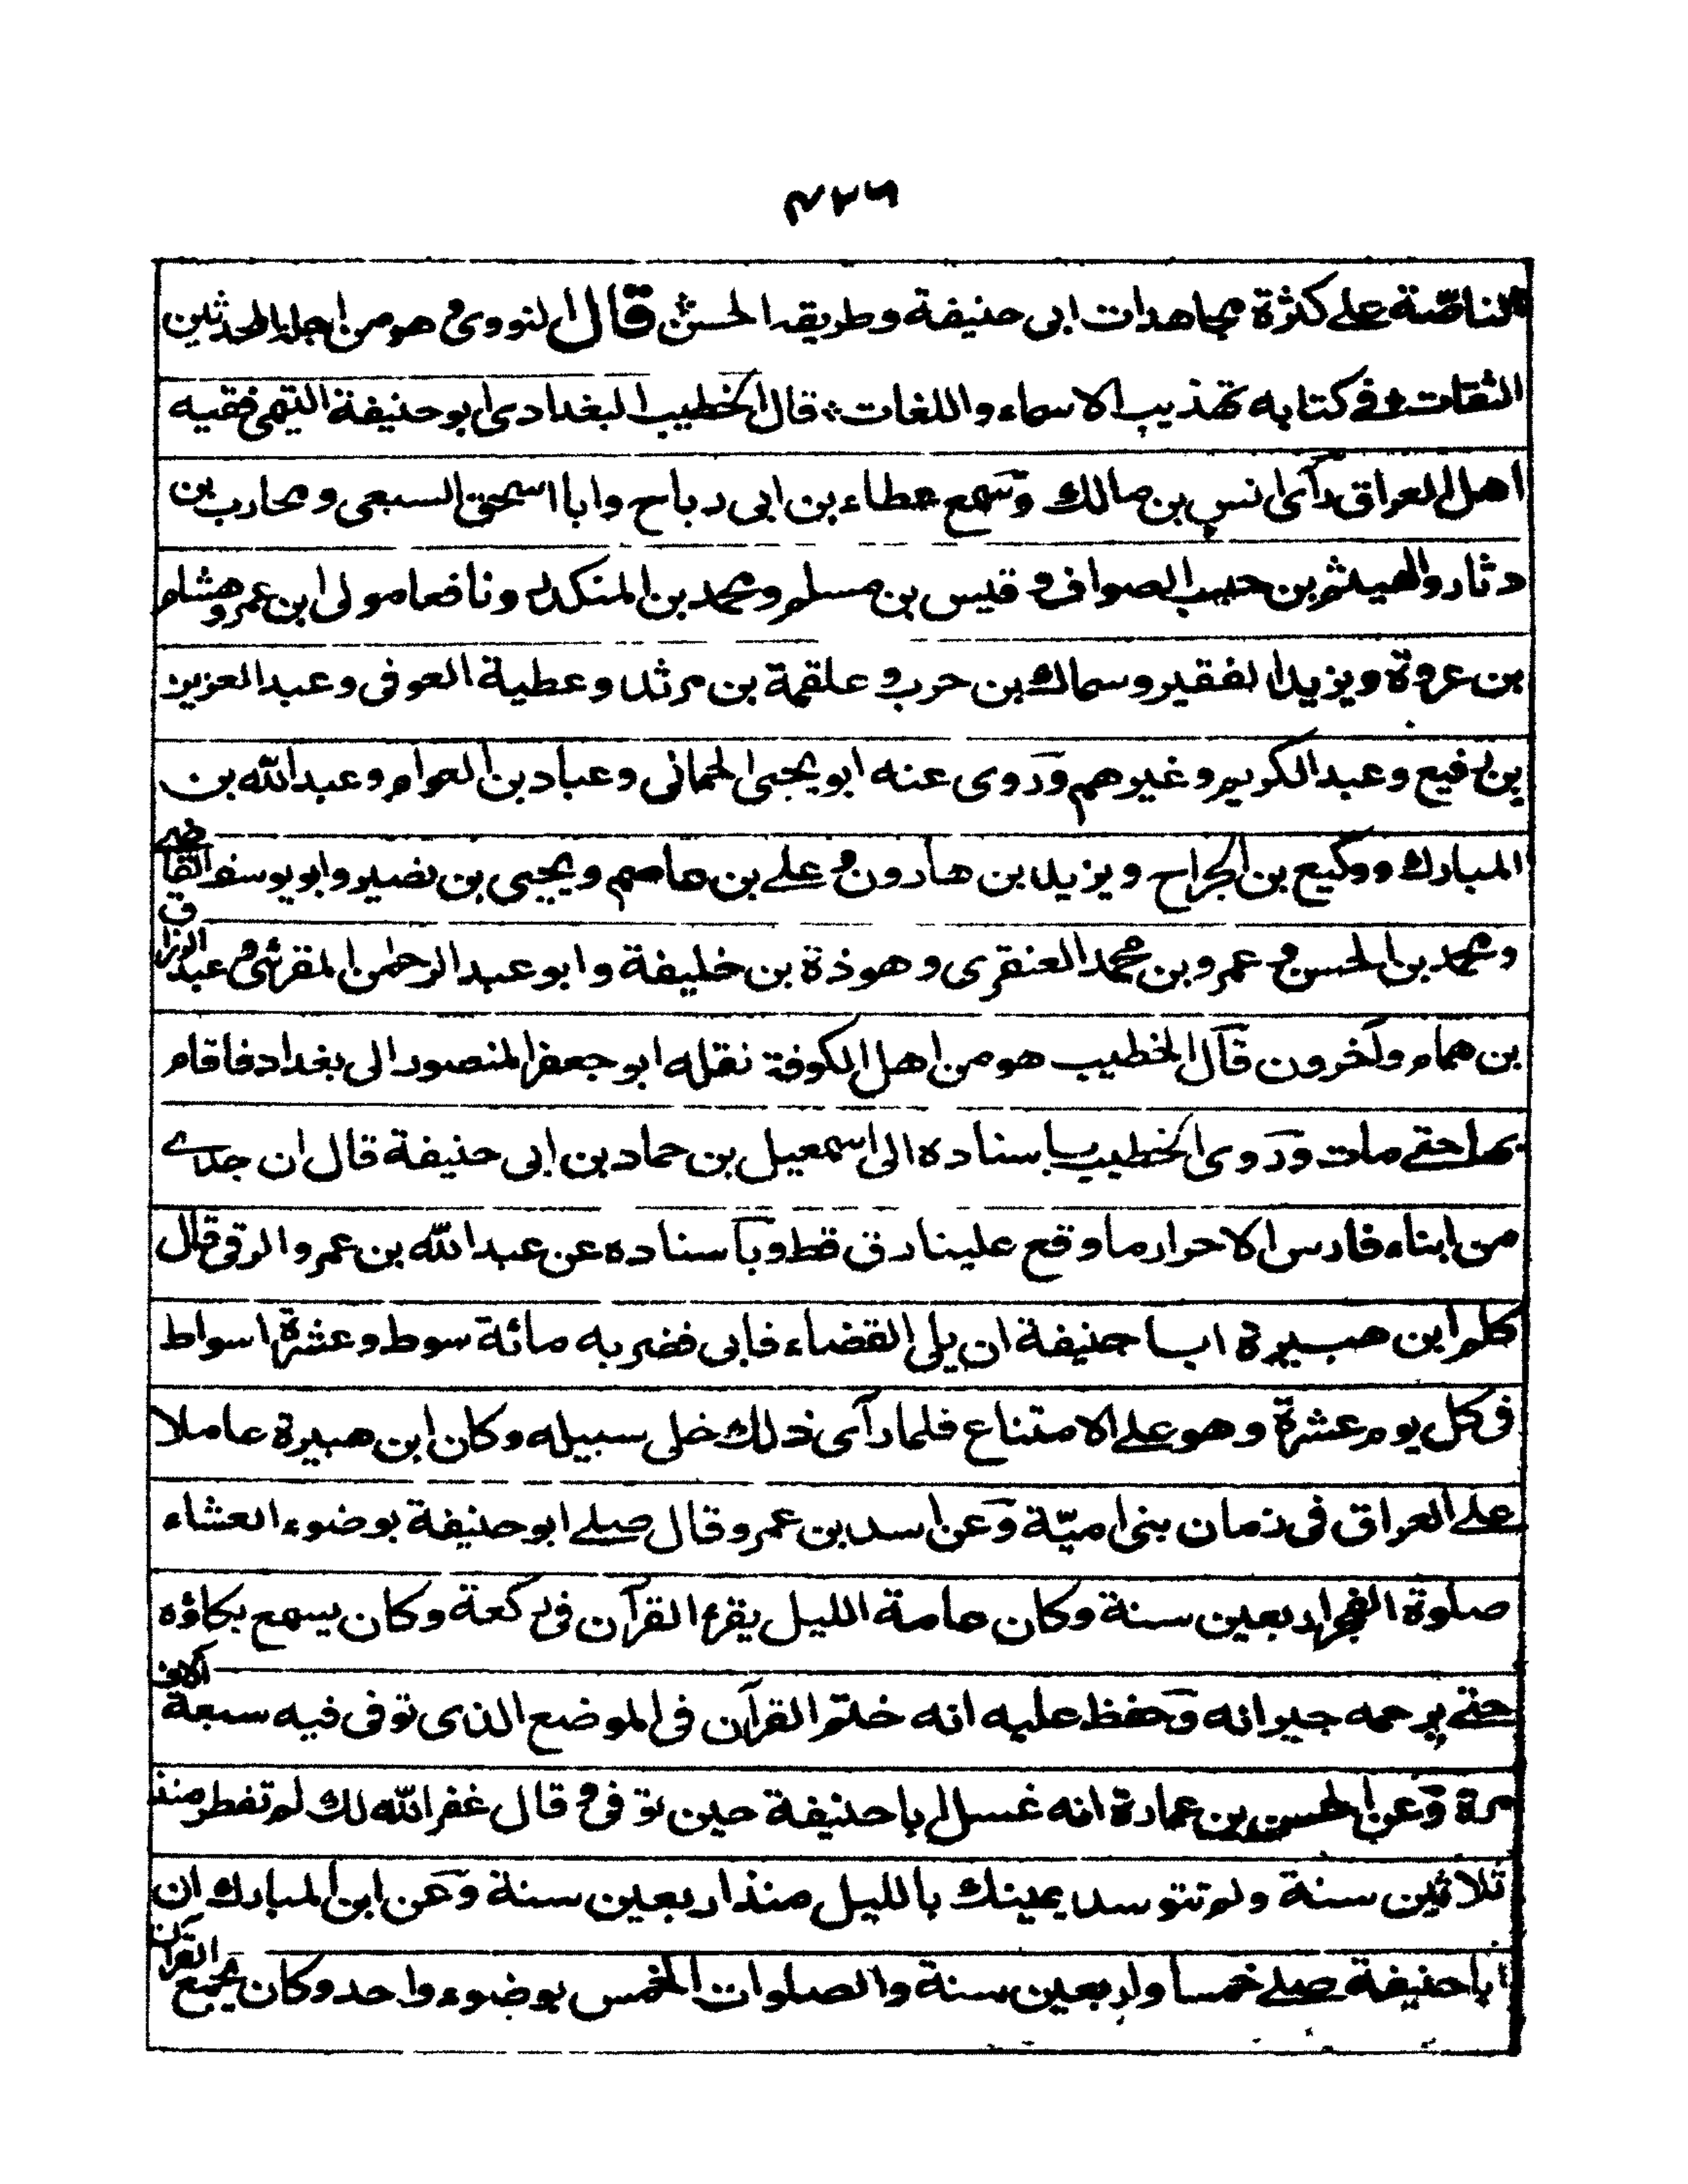 ٤٣٦
الناصّة على كثرة مجاهدات ابى حنيفة وطريقه الحسن قال النووى وهو من اجلة المحدثين
الثقات فى كتابه تهذيب الاسماء واللغات قال الخطيب البغدادى ابو حنيفة التيمى فقيه
اهل العراق رآى انس بن مالك وسمع عطاء بن ابى رباح وابا اسحق السبعى ومحارب بن
دثار والهيثم بن حبيب الصواف وقيس بن مسلم ومحمد بن المنكدر ونافعا مولى ابن عمر وهشام
بن عروة ويزيد الفقير وسماك بن حرب وعلقمة بن مرثد وعطية العوفى وعبد العزيز
بن رفيع وعبد الكريم وغيرهم وروى عنه ابو يحيى الحمانى وعباد بن العوام وعبد الله بن
المبارك ووكيع بن الجراح ويزيد بن هارون وعلى بن عاصم ويحيى بن نصير وابو يوسف القاضى
ومحمد بن الحسن وعمرو بن محمد العنقرى وهوذة بن خليفة وابو عبد الرحمن المقرئى وعبد الرزاق
بن همام وآخرون قال الخطيب هو من اهل الكوفة نقله ابو جعفر المنصور الى بغداد فاقام
بها حتى مات وروى الخطيب باسناده الى اسمعيل بن حماد بن ابى حنيفة قال ان جدى
من ابناء فارس الاحرار ما وقع علينا رق قط وباسناده عن عبد الله بن عمرو الرقى قال
كلم ابن هبيرة ابا حنيفة ان يلى القضاء فابى فضربه مائة سوط وعشرة اسواط
فى كل يوم عشرة وهو على الامتناع فلما رآى ذلك خلى سبيله وكان ابن هبيرة عاملا
على العراق فى زمان بنى اميّة وعن اسد بن عمرو قال صلى ابو حنيفة بوضوء العشاء
صلوة الفجر اربعين سنة وكان عامة الليل يقرء القرآن فى ركعة وكان يسمع بكاؤه
حتى يرحمه جيرانه وحفظ عليه انه ختم القرآن فى الموضع الذى توفى فيه سبعة آلاف
مرة وعن الحسن بن عمارة انه غسل ابا حنيفة حين توفى وقال غفر الله لك لم تفطر منذ
ثلاثين سنة ولم تتوسد يمينك بالليل منذ اربعين سنة وعن ابن المبارك ان
ابا حنيفة صلى خمسا واربعين سنة والصلوات الخمس بوضوء واحد وكان يجمع القرآن